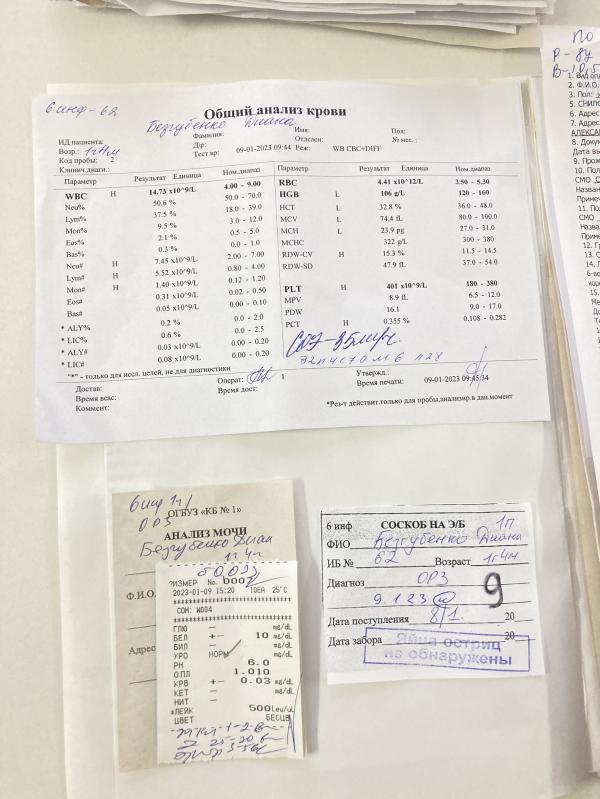 ПО
Р- 87
6 инф - 62
Общий анализ крови
Безгубенко Диана
ИД пациента:
Фамилия:
Имя:
Пол:
Возр.:
Д/р:
Отделен:
№ мес. :
Код пробы: 2
Тест вр: 09-01-2023 09:44 Реж: WB CBC+DIFF
Клинич.диагн.:
Параметр Результат Единица Ном.диапаз
WBC H 14.73 x10^9/L 4.00 - 9.00
Neu% 50.6 % 50.0 - 70.0
Lym% 37.5 % 18.0 - 39.0
Mon% 9.5 % 3.0 - 12.0
Eos% 2.1 % 0.5 - 5.0
Bas% 0.3 % 0.0 - 1.0
Neu# H 7.45 x10^9/L 2.00 - 7.00
Lym# H 5.52 x10^9/L 0.80 - 4.00
Mon# H 1.40 x10^9/L 0.12 - 1.20
Eos# 0.31 x10^9/L 0.02 - 0.50
Bas# 0.05 x10^9/L 0.00 - 0.10
* ALY% 0.2 % 0.0 - 2.0
* LIC% 0.6 % 0.0 - 2.5
* ALY# 0.03 x10^9/L 0.00 - 0.20
* LIC# 0.08 x10^9/L 0.00 - 0.20
Параметр Результат Единица Ном.диапаз
RBC 4.41 x10^12/L 3.50 - 5.30
HGB L 106 g/L 120 - 160
HCT L 32.8 % 36.0 - 48.0
MCV L 74.4 fL 80.0 - 100.0
MCH L 23.9 pg 27.0 - 31.0
MCHC 322 g/L 300 - 380
RDW-CV H 15.3 % 11.5 - 14.5
RDW-SD 47.9 fL 37.0 - 54.0
PLT H 401 x10^9/L 180 - 380
MPV 8.9 fL 6.5 - 12.0
PDW 16.1 9.0 - 17.0
PCT H 0.355 % 0.108 - 0.282
"*" - только для иссл. целей, не для диагностики
Достав:
Оператс: 1
Утвержд.:
Время взас:
Время дост:
Время печати: 09-01-2023 09:45:34
Коммент:
*Рез-т действит.только для пробы,анализир.в дан.момент
6 инф
ОРЗ
ОГБУЗ «КБ № 1»
АНАЛИЗ МОЧИ
Безгубенко Диан
1г 4м
Ф.И.О.
Адрес
No. 0007
2023-01-09 15:20 IDEA 25°C
СОМ: W004
ГЛЮ - mg/dL
БЕЛ +- 10 mg/dL
БИЛ - mg/dL
УРО НОРМ mg/dL
PH 6.0
О.ПЛ 1.010
КРВ +- 0.03 mg/dL
КЕТ - mg/dL
НИТ -
*ЛЕЙК 500Leu/uL
ЦВЕТ БЕСЦВ
6 инф СОСКОБ НА Э/Б 1п
ФИО Безгубенко Диана
ИБ № 62 Возраст 1г 4м
Диагноз ОРЗ
9
9.1 23
Дата поступления 8/1. 20
Дата забора 20
Яйца остриц
не обнаружены
1. Вид
2. Ф.И.О.
3. Пол:
5. СНИЛС
6. Адрес
7. Адрес
АЛЕКСАН
8. Докум
Дата вы